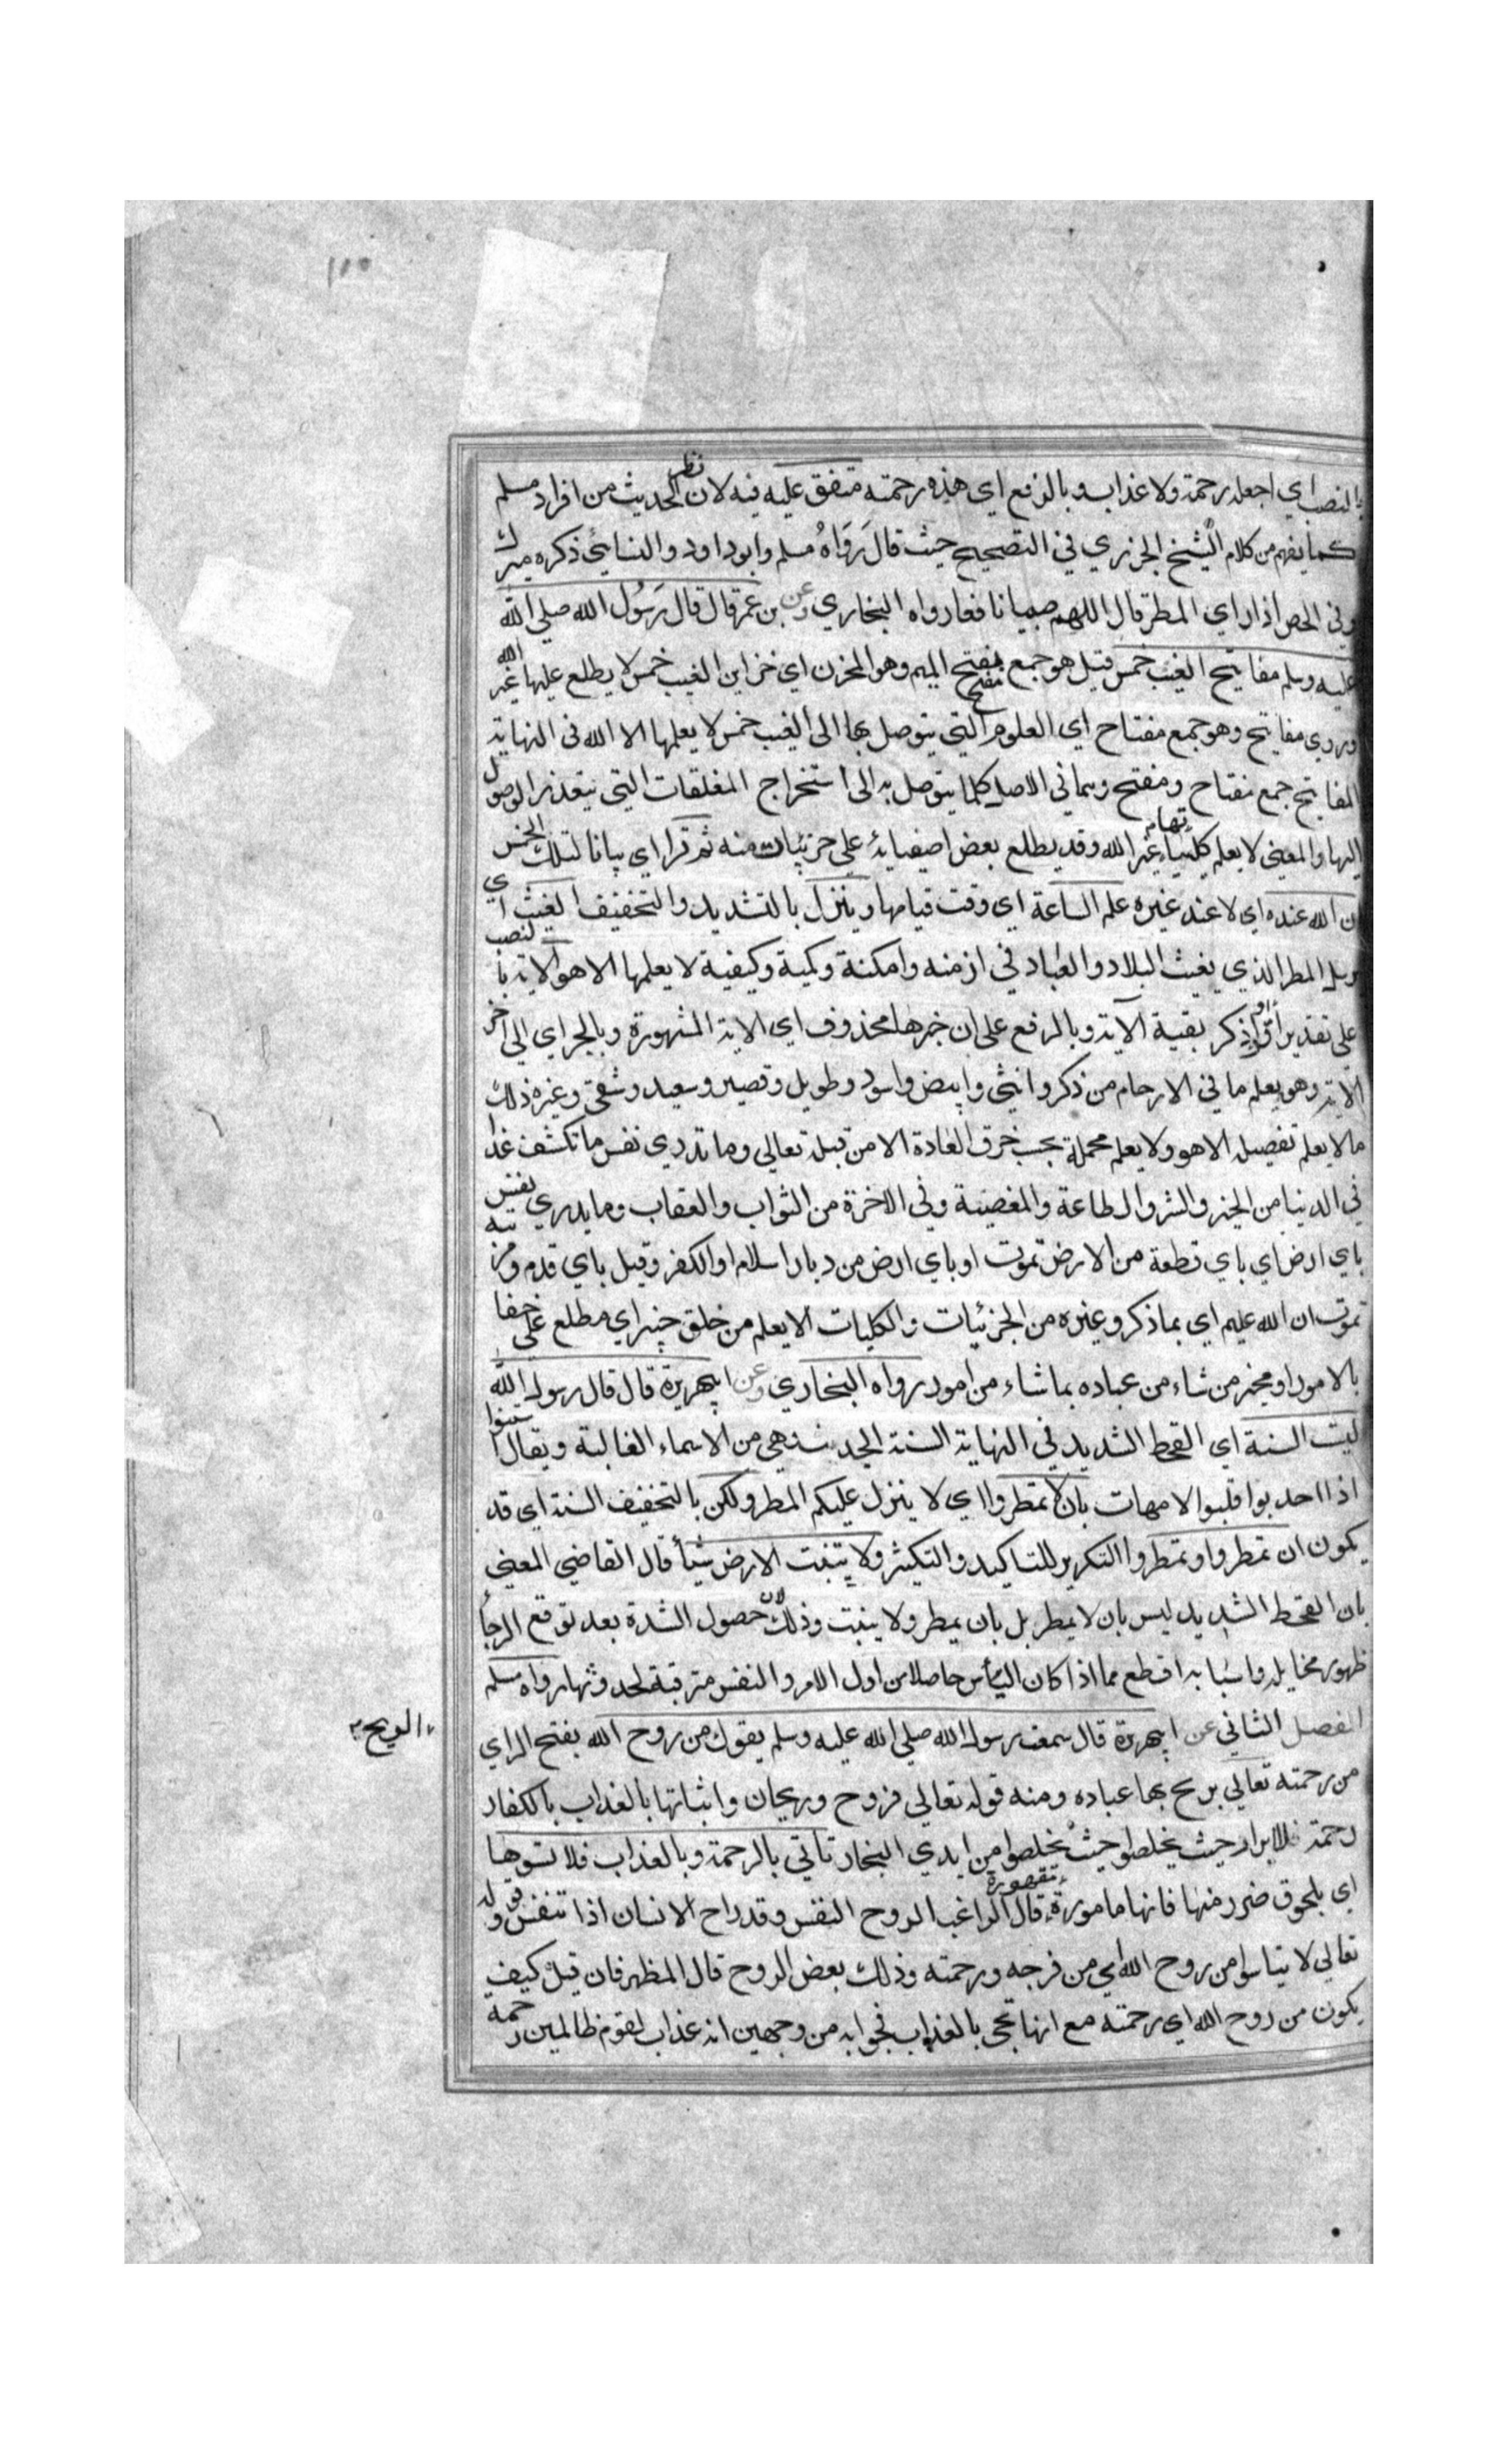 ١١٥
بالنصب اي اجعله رحمة ولا عذابا وبالرفع اي هذه رحمته متفق عليه فيه نظر لان الحديث من افراد مسلم
كما يفهم من كلام الشيخ الجزري في التصحيح حيث قال رَوَاهُ مسلم وابوداود والنسايئ ذكره ميرك
وفي الحصن اذا راي المطر قال اللهم صيبا نافعا رواه البخاري وعن بن عمر قال قال رَسُول الله صلى الله
عليه وسلم مفاتيح الغيب خمس قيل هو جمع مفتح بفتح الميم وهو المخزن اي خزاين الغيب خمس لا يطلع عليها غير الله
وروي مفاتيح وهو جمع مفتاح اي العلوم التي يتوصل بها الى الغيب خمس لا يعلمها الا الله في النهاية
المفاتيح جمع مفتاح ومفتح وهما في الاصل كلما يتوصل به الى استخراج المغلقات التي يتعذر الوصول
اليها والمعنى لا يعلم كلياتها غير الله وقد يطلع بعض اصفيائه على جزئيات منه ثم قرا اي بيانا لتلك الخمس
ان الله عنده اي لا عند غيره علم الساعة اي وقت قيامها وينزل بالتشديد والتخفيف الغيث اي
يرسل المطر الذي يغيث البلاد والعباد في ازمنه وامكنة وكمية وكيفية لا يعلمها الا هو الاية بالنصب
على تقدير أقرا واذكر بقية الآية وبالرفع على ان خبرها محذوف اي الاية المشهورة وبالجر اي الى اخر
الاية وهو يعلم ما في الارحام من ذكر وانثى وابيض واسود وطويل وقصير وسعيد وشقي وغيره ذلك
مالا يعلم تفصيله الا هو ولا يعلم مجملة بحسب خرق العادة الا من قبله تعالى وما تدري نفس ما تكشف غدا
في الدنيا من الخير والشر والطاعة والمعصية وفي الاخرة من الثواب والعقاب وما يدري نفس
باي ارض اي باي قطعة من الارض تموت او باي ارض من ديار اسلام او الكفر وقيل باي قدم ومرتبه
تموت ان الله عليم اي بما ذكر وغيره من الجزئيات والكليات الا يعلم من خلق خبير اي مطلع على خفايا
بالامور او مخبر من شاء من عباده بما شاء من امور رواه البخاري وعن ابي هريرة قال قال رسول الله
ليست السنة اي القحط الشديد في النهاية السنة الجدب وهي من الاسماء الغالبة ويقال اسنتوا
اذا اجدبوا قلبوا الامهات بان لا تمطروا اي لا ينزل عليكم المطر ولكن بالتخفيف السنة اي قد
يكون ان تمطروا وتمطروا التكرير للتاكيد والتكثير ولا تنبت الارض شيأ قال القاضي المعنى
بان القحط الشديد ليس بان لا يمطر بل بان يمطر ولا ينبت وذلك لان حصول الشدة بعد توقع الرجأ
ظهور مخايله واسبابه اقطع مما اذا كان اليأس حاصلا من اول الامر والنفس مترقبة لحدوثها رواه مسلم
الفصل الثاني عن ابي هريرة قال سمعت رسول الله صلى الله عليه وسلم يقول من روح الله بفتح الراي
الريح
من رحمته تعالي يريح بها عباده ومنه قوله تعالى فروح وريحان واثباتها بالعذاب بالكفار
رحمة للابرار حيث يخلصوا حيث يخلصوا من ايدي الفجار تأتي بالرحمة وبالعذاب فلا تسبوها
اي بلحوق ضرر منها فانها مامورة مقهورة قال الراغب الروح النفس وقد راح الانسان اذا تنفس وقوله
تعالى لا تيأسوا من روح الله اي من فرجه ورحمته وذلك بعض الروح قال المظهر فان قيل كيف
يكون من روح الله اي رحمته مع انها تجئ بالعذاب فجوابه من وجهين انه عذاب لقوم ظالمين رحمه